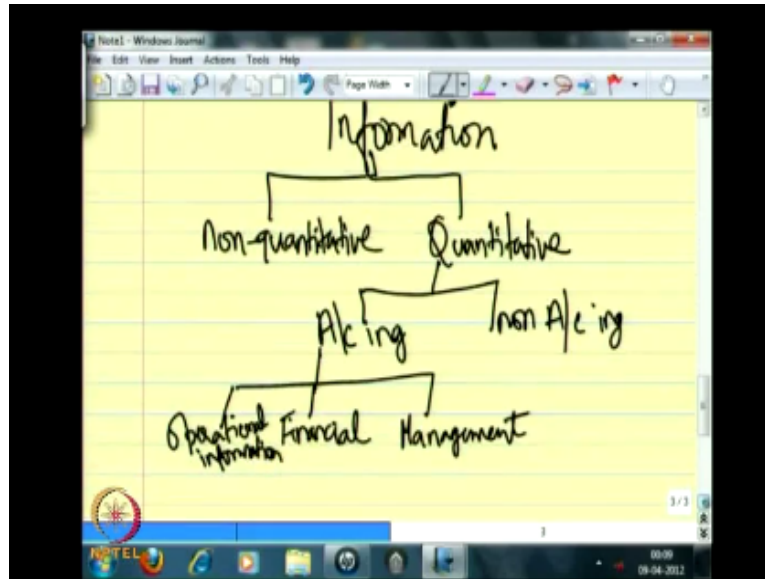 Note1 - Windows Journal
File Edit View Insert Actions Tools Help
Page Width
Information
Non-quantitative Quantitative
A/c ing non A/c ing
Operational Financial Management
information
3/3
3
NPTEL
00:09
09-04-2012